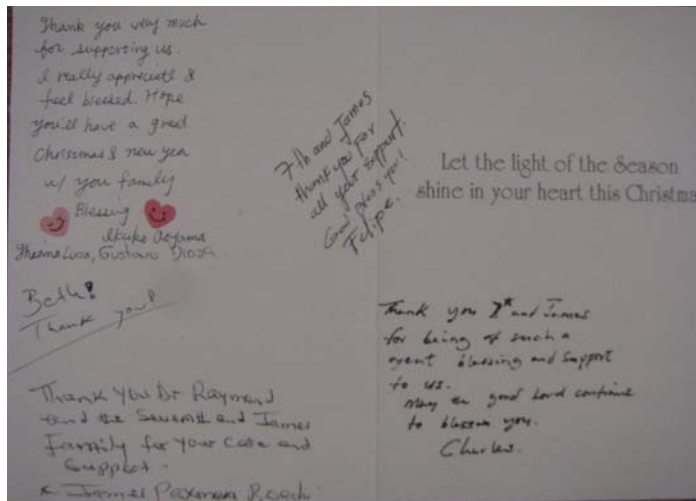 Thank you very much
for supporting us.
I really appreciate &
feel blessed. Hope
you'll have a great
Christmas & new year
w/ you family
Blessing
Ikuko Aoyama
Gustavo
Beth!
Thank you!
Thank You Dr Raymond
and the Seventh and James
Family for your Care and
Support.
James
7th and James
thank you For
all your support.
God bless you!
Felipe.
Let the light of the Season
shine in your heart this Christma
Thank you 7th and James
for being of such a
great blessing and support
to us.
May the good Lord continue
to blessen you.
Charles.